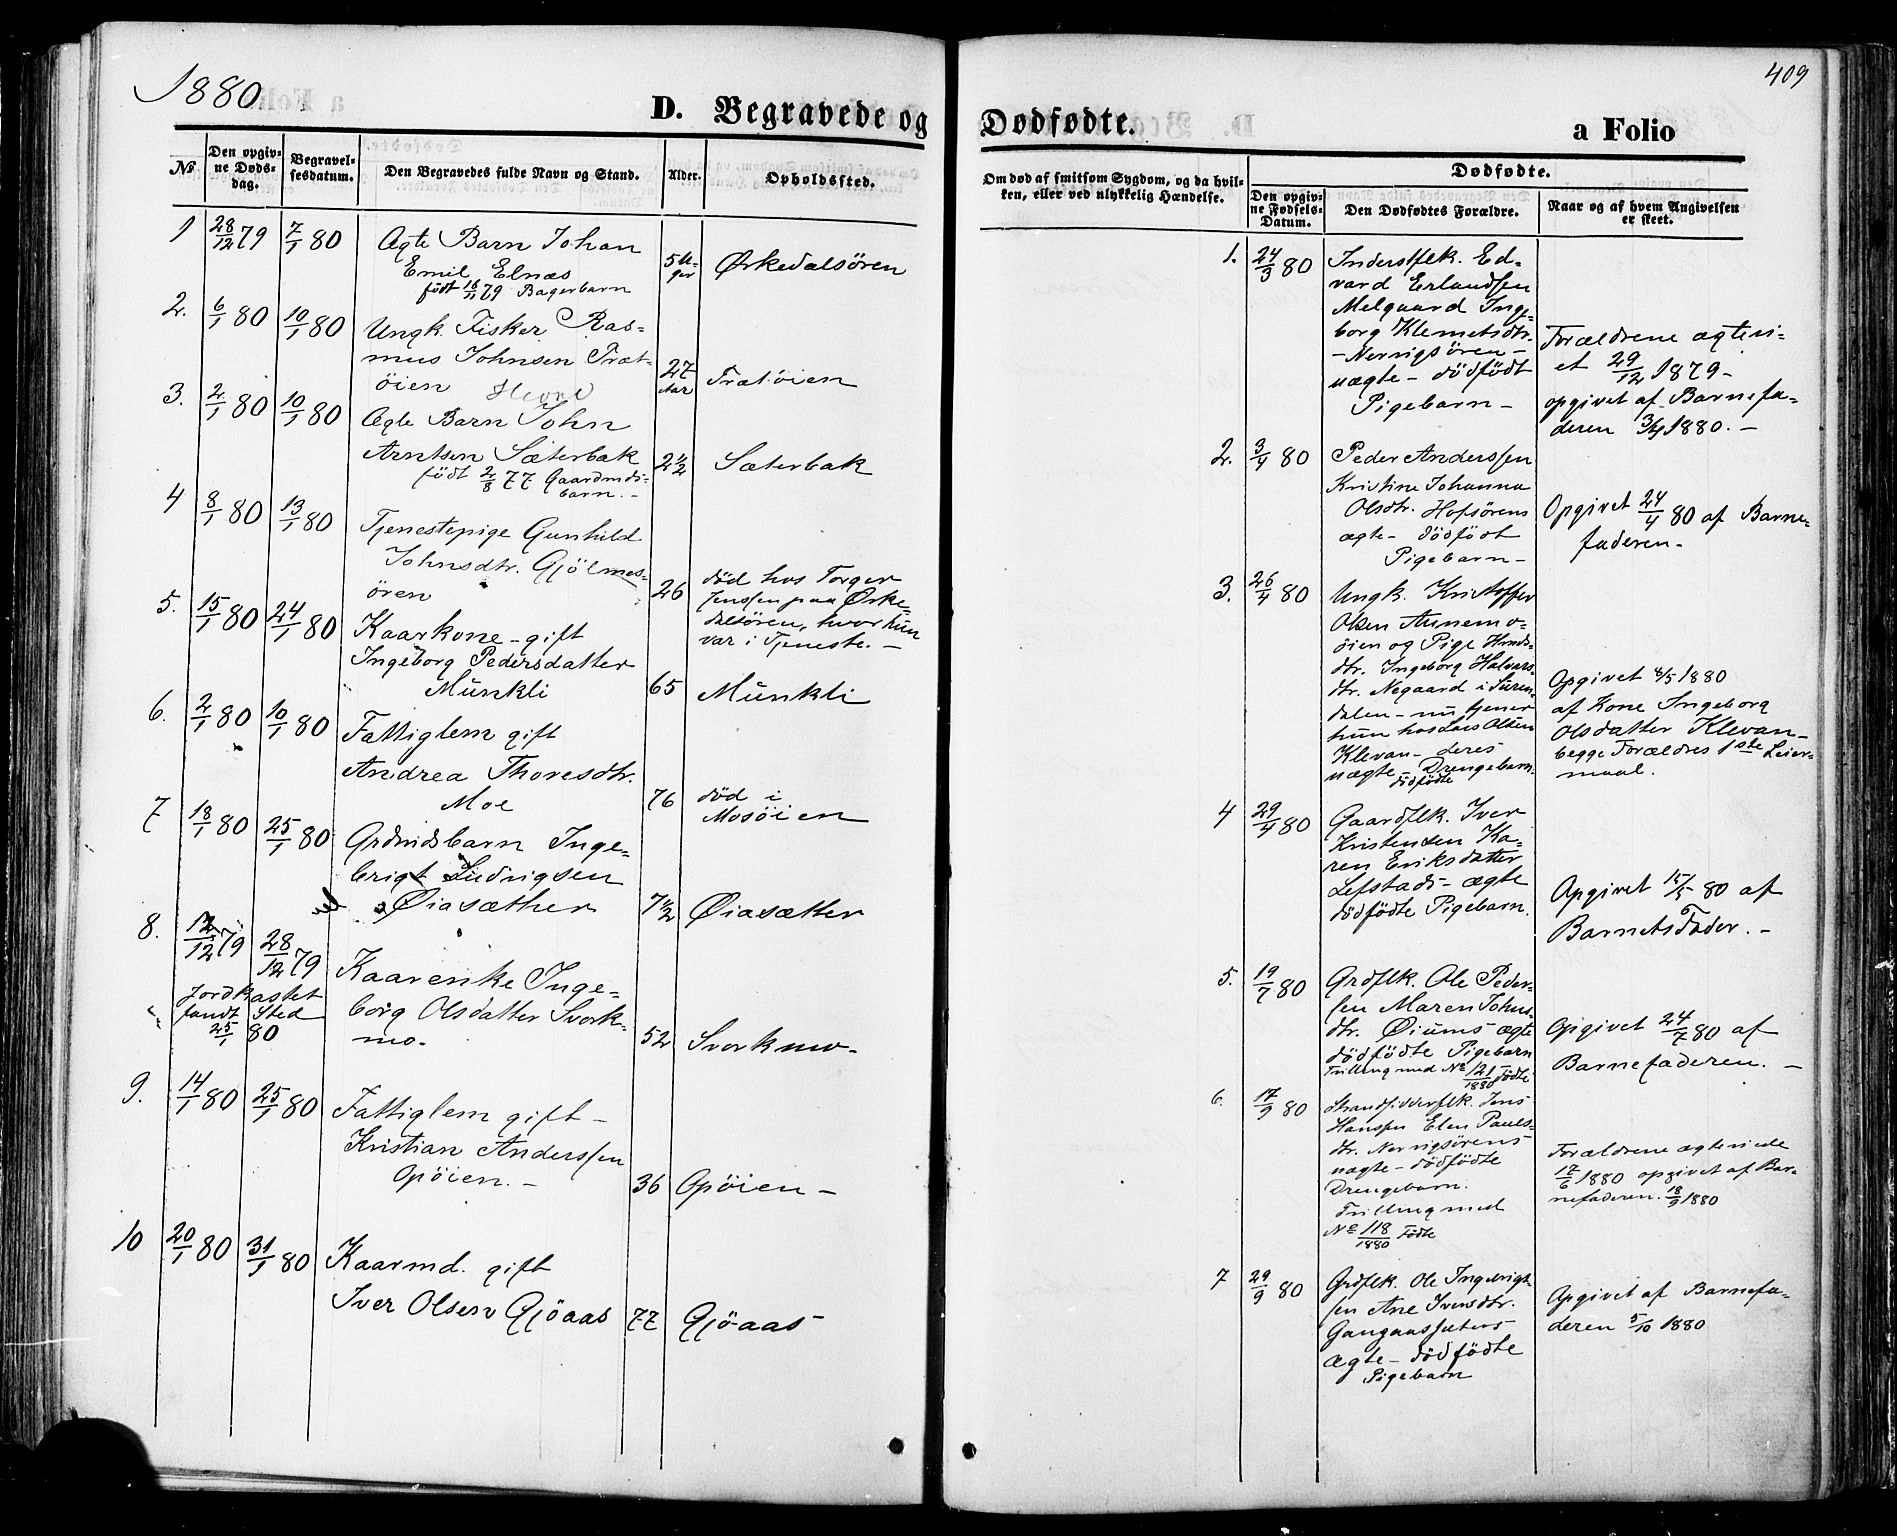 1880
D. Begravede og
№
Den opgiv-
ne Døds-
dag.
Begravel-
sesdatum.
Den Begravedes fulde Navn og Stand.
Alder.
Opholdssted.
1 28/12 79 7/1 80 Ægte Barn Johan
Emil Elnæs
født 16/11 79 Bagerbarn
5 U-
ger
Ørkedalsören
2. 6/1 80 10/1 80 Ungk. Fisker Ras-
mus Johnsen Træt-
öien
27
Aar
Trætöien
3. 2/1 80 10/1 80 Ægte Barn John
Arntsen Sæterbak
født 2/8 77 Gaardmds-
barn.-
2 1/2 Sæterbak
4 8/1 80 13/1 80 Tjenestepige Gunhild
Johnsdtr. Gjölmes-
ören
26 død hos Torger
Jenssen paa Ørke-
dalsören, hvor hun
var i Tjeneste.-
5. 15/1 80 24/1 80 Kaarkone - gift
Ingeborg Pedersdatter
Munkli
65 Munkli
6. 2/1 80 10/1 80 Fattiglem gift
Andrea Thoresdtr.
Moe
76 død i
Mosöien
7 18/1 80 25/1 80 Grdmdsbarn Inge-
brigt Ludvigsen
Øiasæther
7 1/2 Øiasætter
8. 12/12 79 28/12 79
Jordkastet
fandt Sted
25/1 80
Kaarenke Inge-
borg Olsdatter Svork-
mo.
52 Svorkmo.
9. 14/1 80 25/1 80 Fattiglem gift -
Kristian Anderssen
Opöien.-
36 Opöien -
10 20/1 80 31/1 80 Kaarmd. gift
Iver Olsen Gjöaas
77 Gjöaas
409
Dødfødte.
a Folio
Om død af smitsom Sygdom, og da hvil-
ken, eller ved ulykkelig Hændelse.
Dødfødte.
Den opgiv-
ne Fødsels-
Datum.
Den Dødfødtes Forældre.
Naar og af hvem Angivelsen
er skeet.
1. 24/3 80 Inderstflk. Ed-
vard Erlandsen
Melgaard Inge-
borg Klemetsdtr.
- Nervigsören -
uægte - dödfödt
Pigebarn -
Forældrene ægtevi-
et 29/12 1879-
opgivet af Barnefa-
deren 3/4 1880.-
2. 3/4 80 Peder Anderssen
Kristine Johanna
Olsdtr. Hofsörens
ægte - dödfödt
Pigebarn -
Opgivet 24/4 80 af Barne-
faderen.
3. 26/4 80 Ungk. Kristoffer
Olsen Annemo-
öien og Pige
dtr. Ingeborg Halvars-
dtr. Negaard i Suren-
dalen - nu tjener
hun hos Lars Olsen
Klevan - deres
uægte Drengebarn
dödfödte
Opgivet 4/5 1880
af Kone Ingeborg
Olsdatter Klevan -
begge Forældres 1ste Leier-
maal.
4 29/4 80 Gaardflk. Iver
Kristensen Ka-
ren Eriksdatter
Lefstads - ægte
dödfödte Pigebarn.
Opgivet 15/5 80 af
Barnets Fader.-
5. 19/7 80 Grdflk. Ole Peder-
sen Maren Johns-
dtr. Øiums ægte
dödfödte Pigebarn
Tvilling med № 121/1880 Födte
Opgivet 24/7 80 af
Barnefaderen. -
6. 17/9 80 Strandsidderflk. Jens
Hanssen Elen Pauls-
dtr. Nervigsörens
uægte - dödfödte
Drengebarn.
Tvilling med
№ 118/1880 Födte
Forældrene ægteviede
17/6 1880 opgivet af Bar-
nefaderen. 18/9 1880
7 29/9 80 Grdflk. Ole Ingebrigt-
sen Ane Iversdtr.
Gangaassæters
ægte - dödfödte
Pigebarn
Opgivet af Barnefa-
deren 5/10 1880